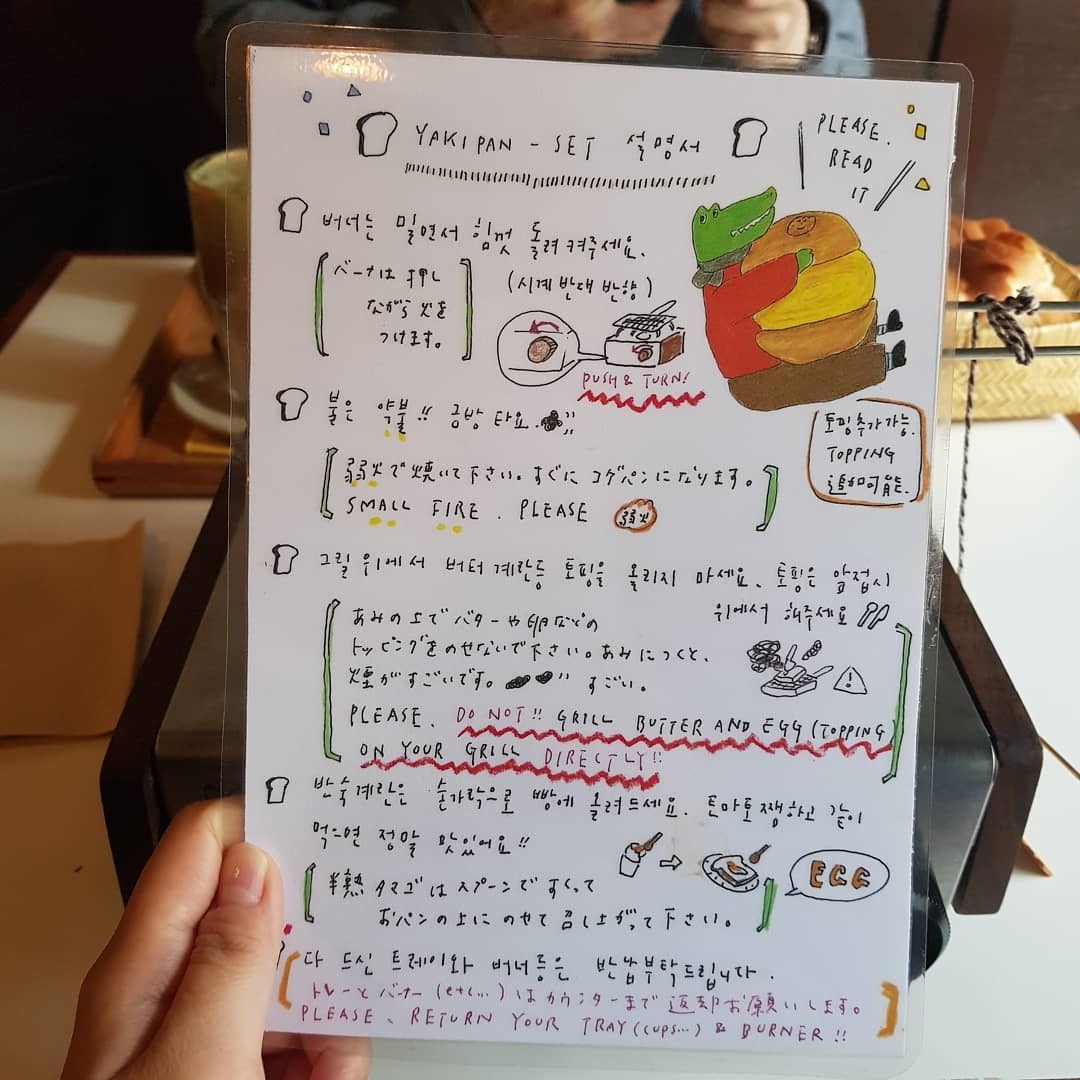 YAKIPAN - SET 설명서
PLEASE.
READ
IT
버너는 밀면서 힘껏 돌려 켜주세요.
バーナは押し
ながら火を
つけます。
(시계 반대 반향)
PUSH & TURN!
불은 약불!! 금방 타요.
弱火で焼いて下さい。すぐにコゲパンになります。
SMALL FIRE. PLEASE 弱火
토핑추가가능.
TOPPING
追加可能.
그릴 위에서 버터 계란등 토핑을 올리지 마세요. 토핑은 앞접시
위에서 해주세요
あみの上でバターや卵などの
トッピングをのせないで下さい。あみにつくと、
煙がすごいです。 すごい。
PLEASE. DO NOT!! GRILL BUTTER AND EGG (TOPPING
ON YOUR GRILL DIRECTLY!!
반숙계란은 숟가락으로 빵에 올려드세요. 토마토쨈하고 같이
먹으면 정말 맛있어요!!
EGG
半熟タマゴはスプーンですくって
おパンの上にのせて召し上がって下さい。
다 드신 트레이와 버너등은 반납부탁드립니다.
トレーとバナー(etc...)はカウンターまで返却お願いします。
PLEASE. RETURN YOUR TRAY (cups...) & BURNER!!